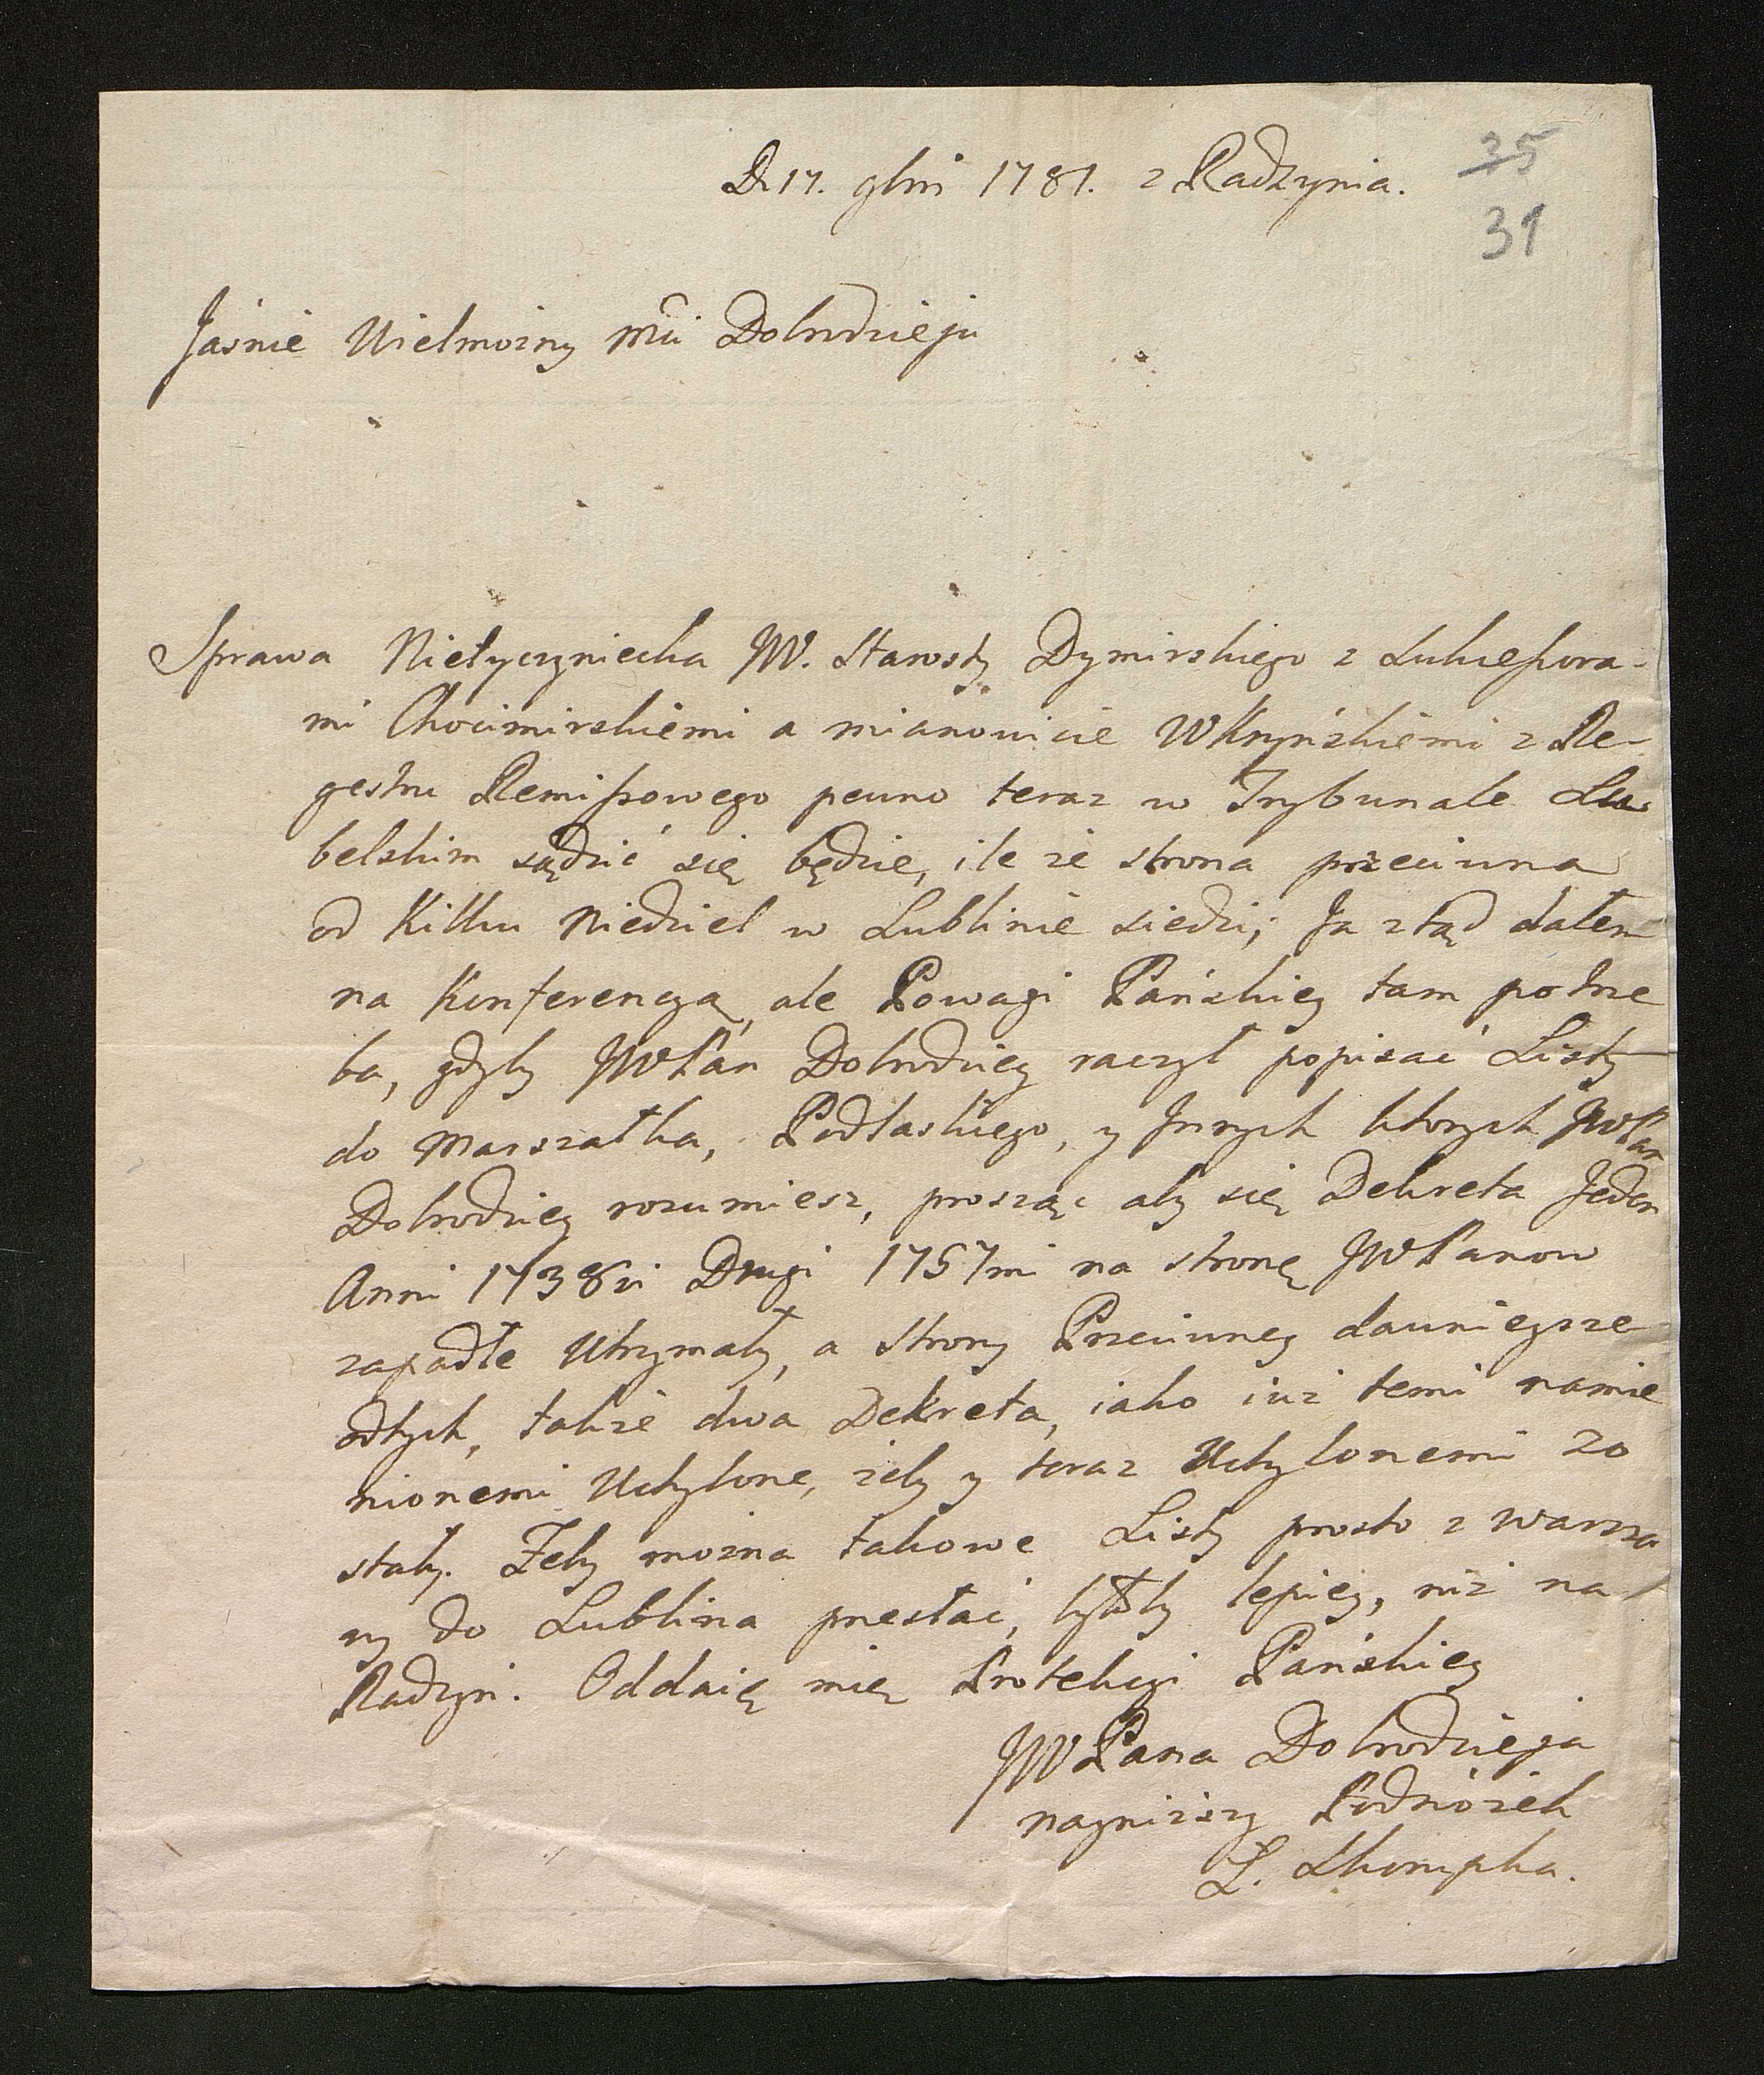 D. 17. 9bris 1781. z Radzynia.
35
31
Jaśnie Wielmożny Mci Dobrodzieju
Sprawa Nietyczyniecka JW. Starosty Dymirskiego z Sukcessora-
mi Chocimirskiemi a mianowicie WKryńskiemi z Re-
gestru Remissowego pewno teraz w Trybunale Lu-
belskim sądzić się będzie, ile że strona przeciwna
od Kilku Niedziel w Lublinie siedzi; Ja ztąd dałem
na Konferencyą, ale Powagi Pańskiey tam potrze
ba, gdyby JWPan Dobrodziey raczył popisać Listy
do Marszałka, Podlaskiego, y Innych ktorych JWPan
Dobrodziey rozumiesz, prosząc aby się Dekreta Jeden
Anni 1738vi Drugi 1757mi na stronę JWPanow
zapadłe Utrzymały, a Strony Przeciwney dawnieysze
odtych, także dwa Dekreta, iako iuż temi namie
nionemi Uchylone, żeby y teraz Uchylonemi zo
stały. Żeby można takowe Listy prosto z Warsza
wy do Lublina przesłać, byłoby lepiey, niż na
Radzyń. Oddaię mię Protekcyi Pańskiey
JWPana Dobrodzieja
naynizszy Podnóżek
Ł. Skorupka.